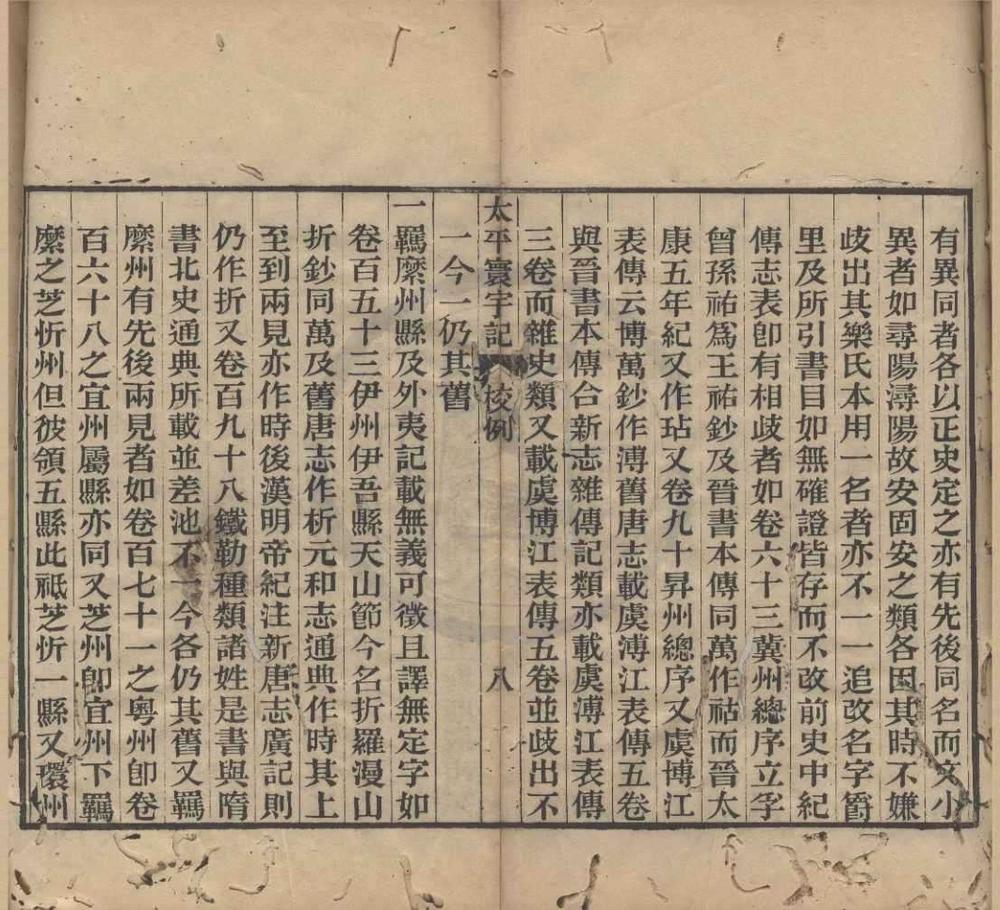 有異同者各以正史定之亦有先後同名而文小
異者如尋陽潯陽故安固安之類各因其時不嫌
歧出其樂氏本用一名者亦不一一追改名字爵
里及所引書目如無確證皆存而不改前史中紀
傳志表卽有相歧者如卷六十三冀州總序立孚
曾孫祐爲王祐鈔及晉書本傳同萬作祜而晉太
康五年紀又作玷又卷九十昇州總序又虞博江
表傳云博萬鈔作溥舊唐志載虞溥江表傳五卷
與晉書本傳合新志雜傳記類亦載虞溥江表傳
三卷而雜史類又載虞博江表傳五卷並歧出不
一今一仍其舊
太平寰宇記 校例 八
一羈縻州縣及外夷記載無義可徵且譯無定字如
卷百五十三伊州伊吾縣天山節今名折羅漫山
折鈔同萬及舊唐志作析元和志通典作時其上
至到兩見亦作時後漢明帝紀注新唐志廣記則
仍作折又卷百九十八鐵勒種類諸姓是書與隋
書北史通典所載並差池不一今各仍其舊又羈
縻州有先後兩見者如卷百七十一之粵州卽卷
百六十八之宜州屬縣亦同又芝州卽宜州下羈
縻之芝忻州但彼領五縣此祗芝忻一縣又瓌州